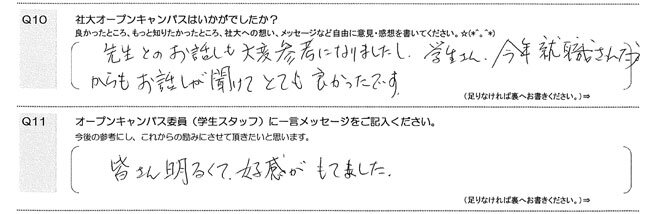 Q10 社大オープンキャンパスはいかがでしたか？
良かったところ、もっと知りたかったところ、社大への想い、メッセージなど自由に意見・感想を書いてください。☆(*^。^*)
先生とのお話しも大変参考になりましたし、学生さん、今年就職さんた方
からもお話しが聞けてとても良かったです。
(足りなければ裏へお書きください。)⇒
Q11 オープンキャンパス委員（学生スタッフ）に一言メッセージをご記入ください。
今後の参考にし、これからの励みにさせて頂きたいと思います。
皆さん明るくて、好感がもてました。
(足りなければ裏へお書きください。)⇒